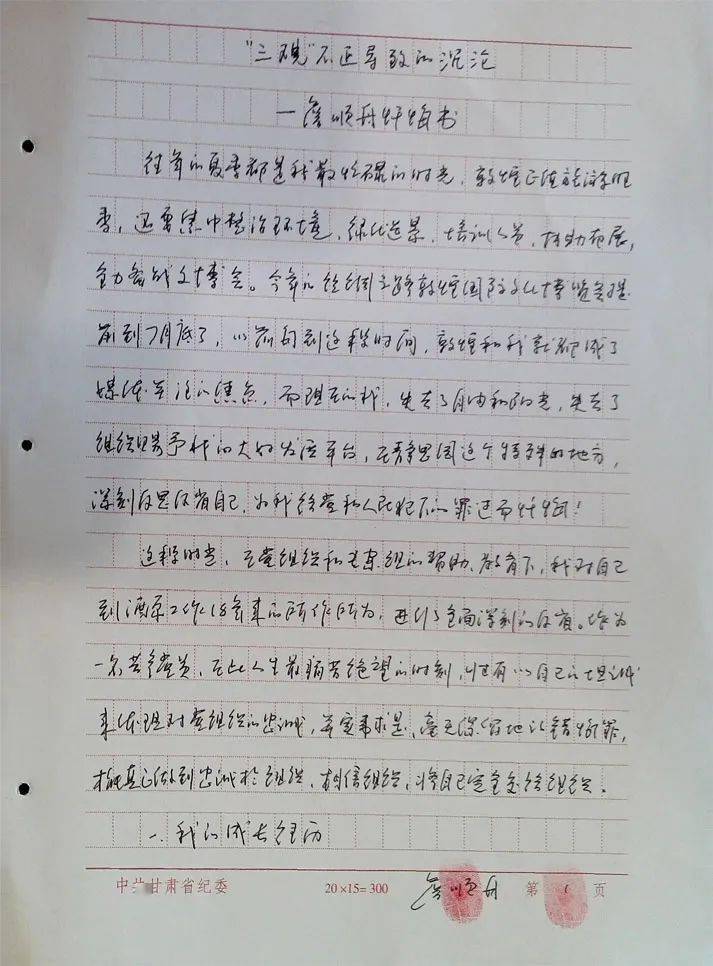 “三观”不正导致的沉沦
—詹顺舟忏悔书
往年的夏季都是我最忙碌的时光，敦煌正值旅游旺
季，还要集中整治环境，绿化造景，培训人员，布展，
全力备战文博会。今年的丝绸之路敦煌国际文化博览会提
前到7月底了，以前每到这段时间，敦煌和我就都成了
媒体关注的焦点，而现在的我，失去了自由和阳光，失去了
组织赐予我的大好发挥平台，在静思园这个特殊的地方，
深刻反思反省自己，为我给党和人民犯下的罪过而忏悔！
这段时光，在党组织和专案组的帮助、教育下，我对自己
到酒泉工作18年来的所作所为，进行了全面深刻的反省。作为
一名共产党员，在此人生最痛苦绝望的时刻，只有以自己的坦诚
来体现对党组织的忠诚，实事求是、毫无保留地认错悔罪，
才能真正做到忠诚于组织、相信组织，将自己完全交给组织。
一、我的成长经历
中共甘肃省纪委 20×15=300 詹顺舟 第 1 页